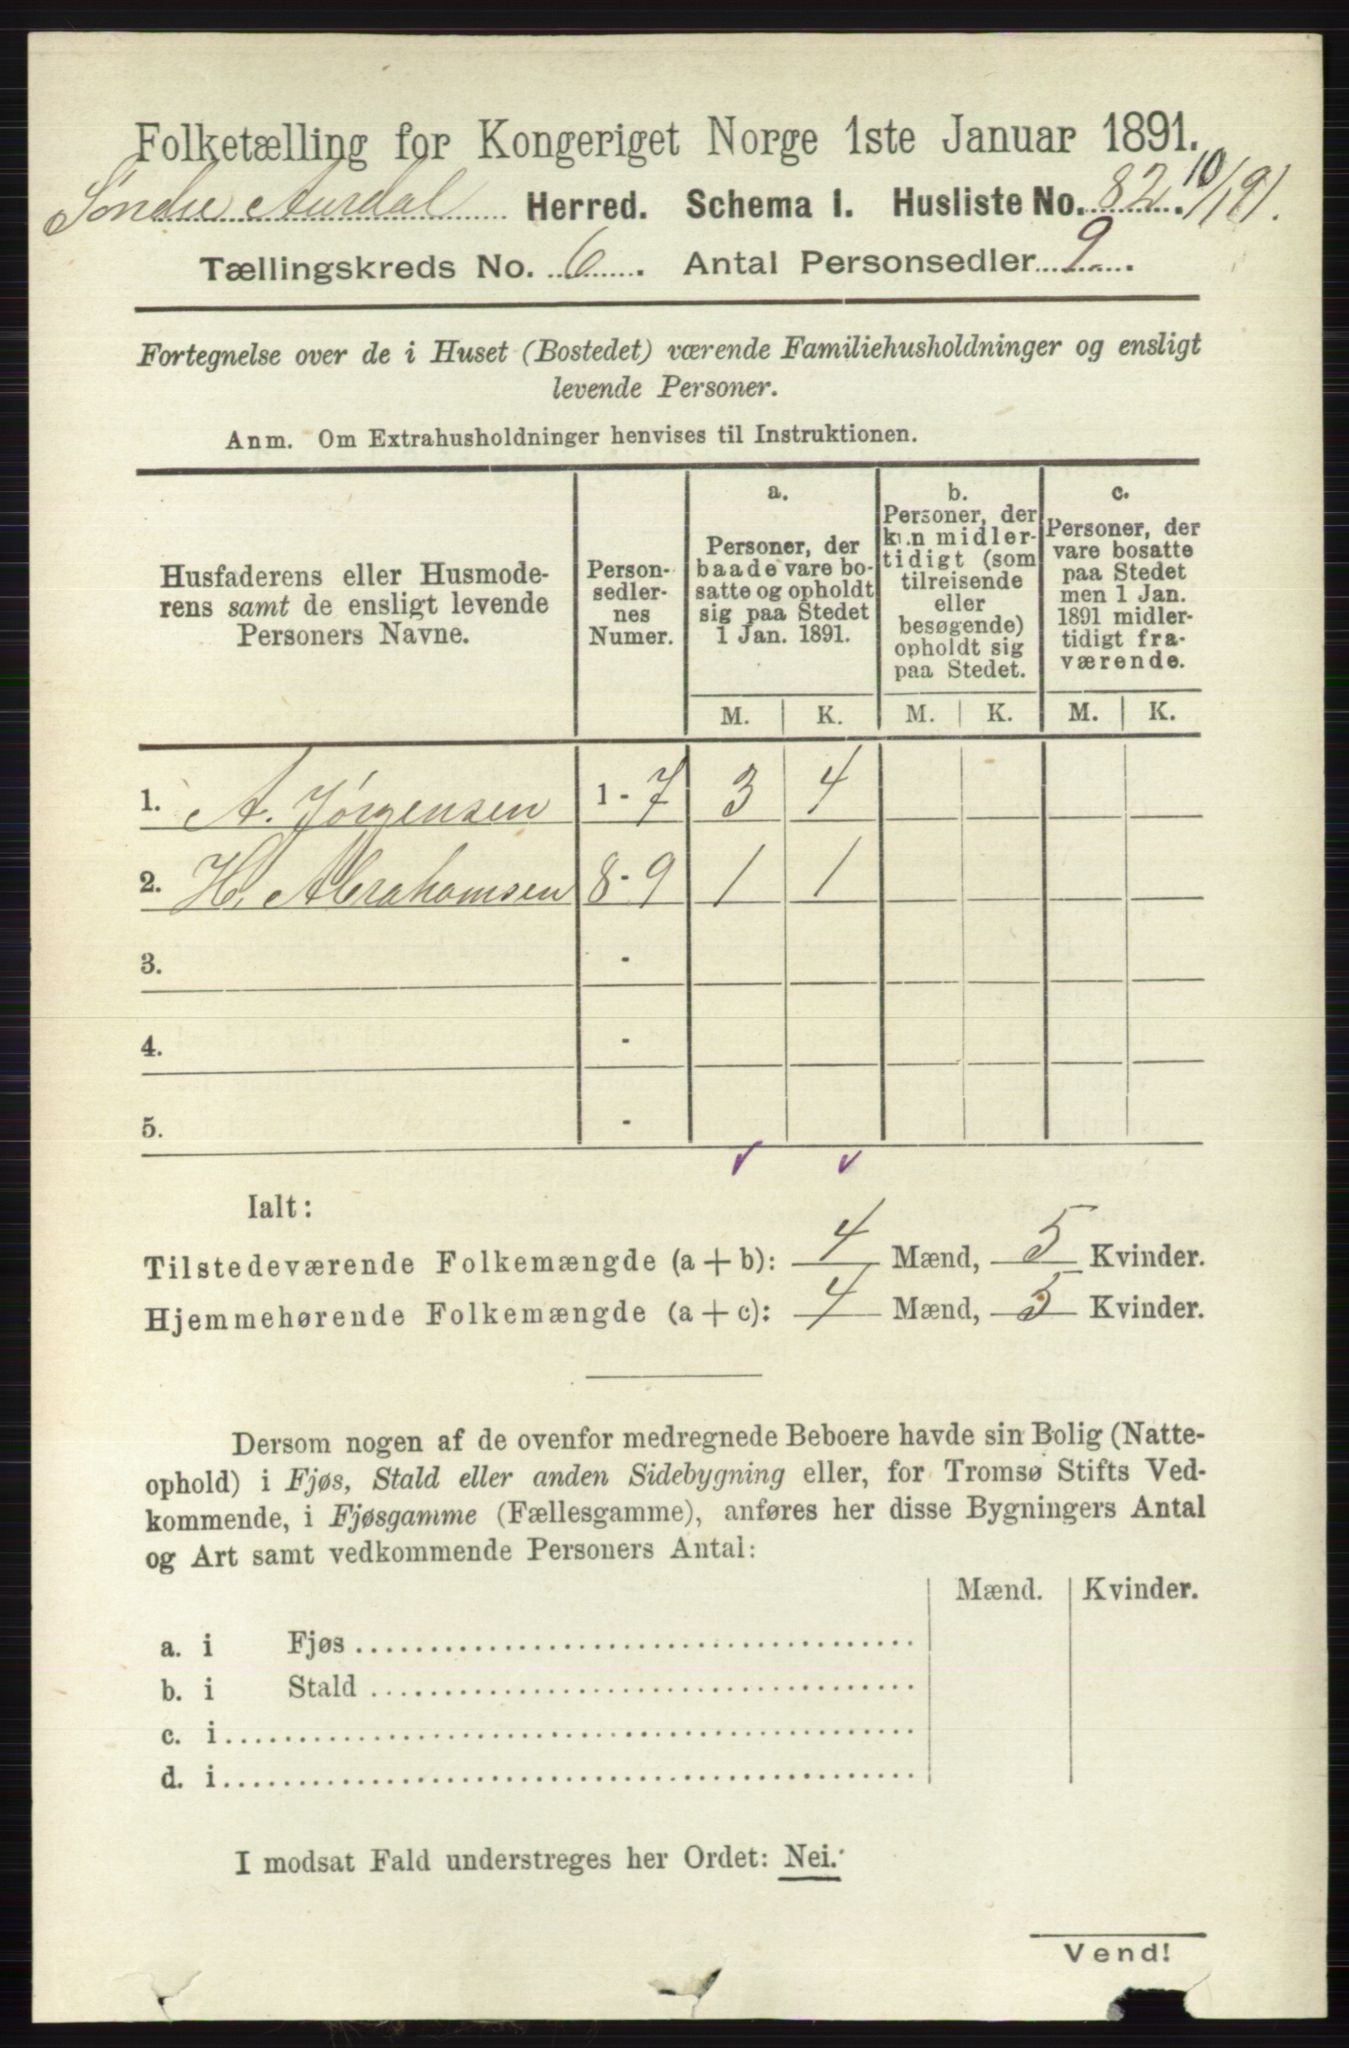 Folketælling for Kongeriget Norge 1ste Januar 1891.
Søndre Aurdal Herred. Schema 1. Husliste No. 82. 10/1 91.
Tællingskreds No. 6. Antal Personsedler 9.
Fortegnelse over de i Huset (Bostedet) værende Familiehusholdninger og ensligt
levende Personer.
Anm. Om Extrahusholdninger henvises til Instruktionen.
Husfaderens eller Husmode-
rens samt de ensligt levende
Personers Navne.
Person-
sedler-
nes
Numer.
a.
Personer, der
baade vare bo-
satte og opholdt
sig paa Stedet
1 Jan. 1891.
b.
Personer, der
kun midler-
tidigt (som
tilreisende
eller
besøgende)
opholdt sig
paa Stedet.
c.
Personer, der
vare bosatte
paa Stedet
men 1 Jan.
1891 midler-
tidigt fra-
værende.
M. K. M. K. M. K.
1. A. Jørgensen 1 - 7 3 4
2. H. Abrahamsen 8 - 9 1 1
3. -
4. -
5. -
Ialt:
Tilstedeværende Folkemængde (a + b): 4 Mænd, 5 Kvinder.
Hjemmehørende Folkemængde (a + c): 4 Mænd, 5 Kvinder.
Dersom nogen af de ovenfor medregnede Beboere havde sin Bolig (Natte-
ophold) i Fjøs, Stald eller anden Sidebygning eller, for Tromsø Stifts Ved-
kommende, i Fjøsgamme (Fællesgamme), anføres her disse Bygningers Antal
og Art samt vedkommende Personers Antal:
Mænd. Kvinder.
a. i Fjøs
b. i Stald
c. i
d. i
I modsat Fald understreges her Ordet: Nei.
Vend!